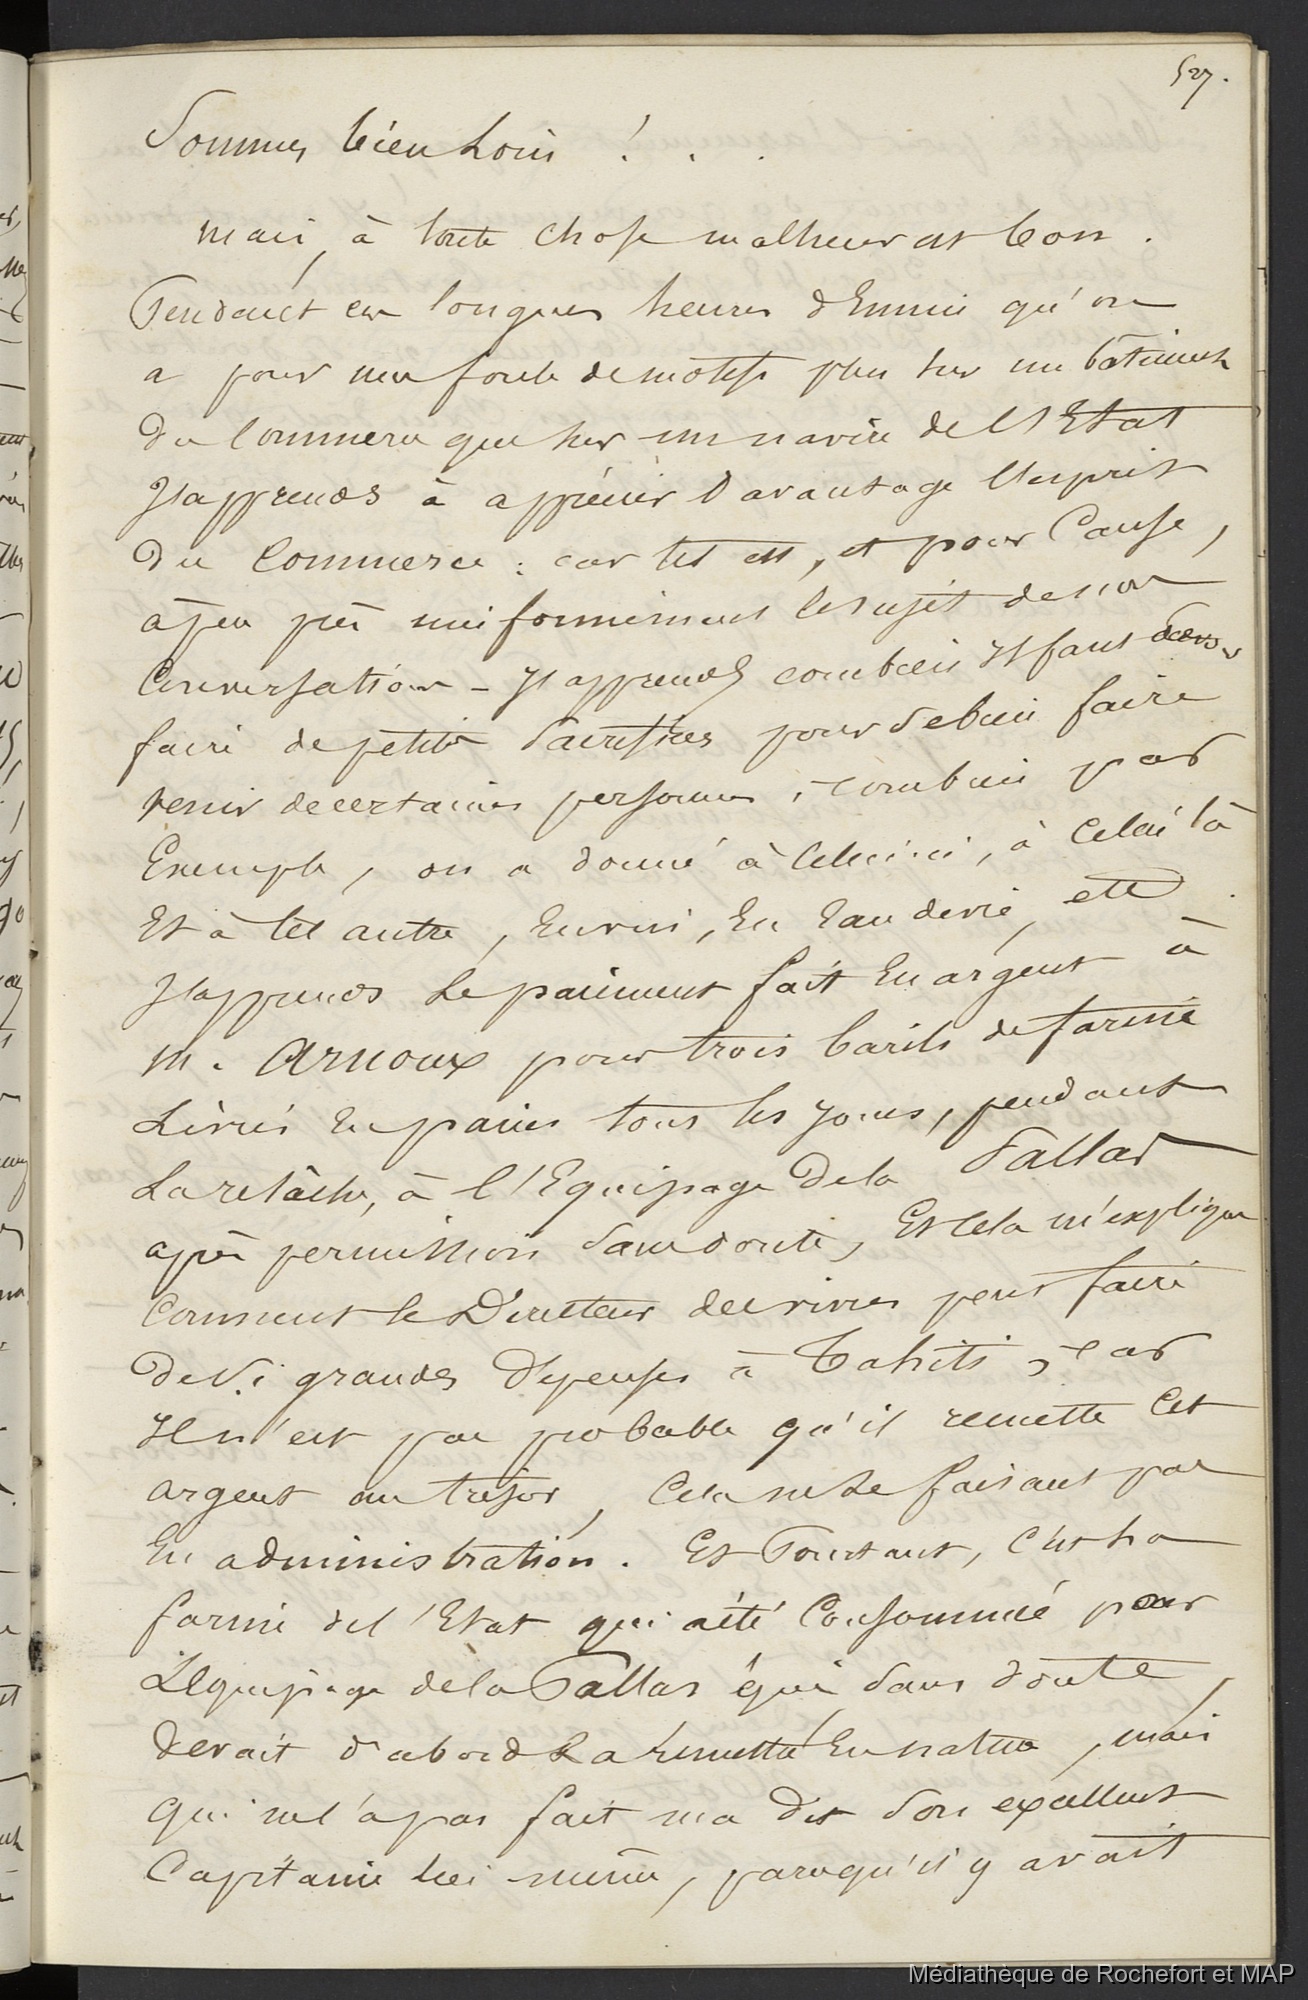 527.
Sommes bien Loin ! . .
mais, à toute chose malheur est bon .
Pendant ces longues heures d'Ennui qu'on
a pour une foule de motifs plus sur un bâtiment
Du Commerce que sur un navire de l'Etat
J'apprends à apprécier Davantage l'esprit
Du Commerce : car tel est, et pour Cause,
à peu près uniformément le sujet de nos
Conversations – J'apprends combien Il faut
faire de petits Sacrifices pour Se bien faire
venir de certaines personnes, combien par
Exemple, on a donné à Celui-ci, à Celui là
Et à tel autre, En vin, En Eau de vie, etc
J'apprends Le paiement fait En argent à
M. Arnoux pour trois barils de farine
Livrés En pains tous les jours, pendant
La relâche, à l'Equipage De la Pallas
après permission Sans doute, Et Cela m'explique
Comment le Directeur des vivres peut faire
De Si grandes Dépenses à Tahiti, car
Il n'est pas probable qu'il remette Cet
argent au trésor, Cela ne Se faisant pas
En administration. Et Pourtant, C'est La
farine de l'Etat qui a été Consommée pour
L'Equipage de la Pallas & qui Sans doute,
Devait D'abord La remettre En nature, mais
qui ne l'a pas fait m'a Dit Son excellent
Capitaine lui même, parcequ'il y avait
Médiathèque de Rochefort et MAP